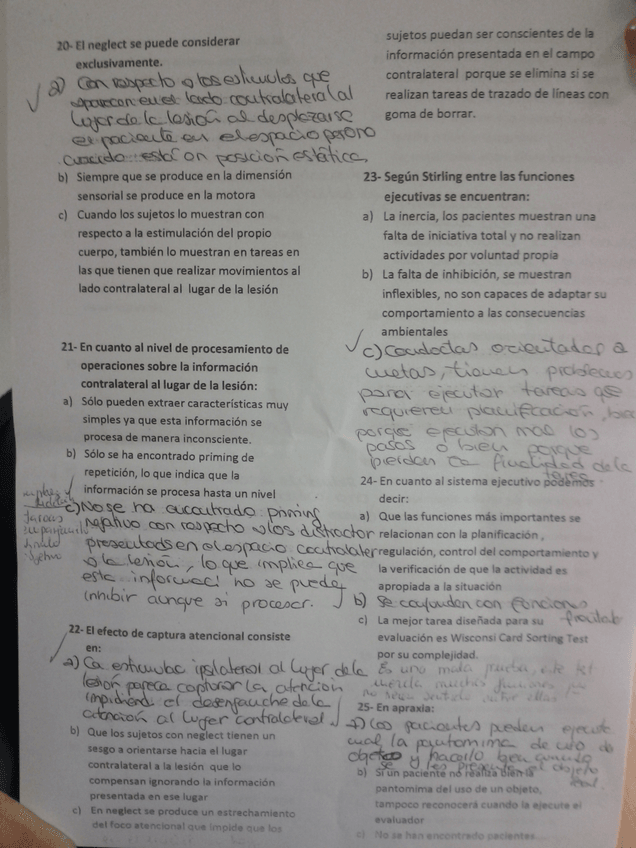 20- El neglect se puede considerar
exclusivamente.
a) Con respecto a los estímulos que
aparecen en el lado contralateral al
lugar de la lesión al desplazarse
el paciente en el espacio pero no
cuando está en posición estática,
b) Siempre que se produce en la dimensión
sensorial se produce en la motora
c) Cuando los sujetos lo muestran con
respecto a la estimulación del propio
cuerpo, también lo muestran en tareas en
las que tienen que realizar movimientos al
lado contralateral al lugar de la lesión
21- En cuanto al nivel de procesamiento de
operaciones sobre la información
contralateral al lugar de la lesión:
a) Sólo pueden extraer características muy
simples ya que esta información se
procesa de manera inconsciente.
b) Sólo se ha encontrado priming de
repetición, lo que indica que la
información se procesa hasta un nivel
tareas
c) No se ha encontrado priming
negativo con respecto a los distractor
presentados en el espacio contralater
a la lesión, lo que implica que
esta informaci no se puede
inhibir aunque si procesar.
22- El efecto de captura atencional consiste
en:
a) La estimulac ipsilateral al lugar de la
lesión parece capturar la atención
impidiendo el desenganche de la
atención al lugar contralateral
b) Que los sujetos con neglect tienen un
sesgo a orientarse hacia el lugar
contralateral a la lesión que lo
compensan ignorando la información
presentada en ese lugar
c) En neglect se produce un estrechamiento
del foco atencional que impide que los
sujetos puedan ser conscientes de la
información presentada en el campo
contralateral porque se elimina si se
realizan tareas de trazado de líneas con
goma de borrar.
23- Según Stirling entre las funciones
ejecutivas se encuentran:
a) La inercia, los pacientes muestran una
falta de iniciativa total y no realizan
actividades por voluntad propia
b) La falta de inhibición, se muestran
inflexibles, no son capaces de adaptar su
comportamiento a las consecuencias
ambientales
c) Conductas orientadas a
metas, tienen problemas
para ejecutar tareas que
requieren planificación, bien
porque ejecutan mal los
pasos o bien porque
pierdan la finalidad de la
tarea
24- En cuanto al sistema ejecutivo podemos
decir:
a) Que las funciones más importantes se
relacionan con la planificación,
regulación, control del comportamiento y
la verificación de que la actividad es
apropiada a la situación
b) Se confunden con funciones
c) La mejor tarea diseñada para su
evaluación es Wisconsi Card Sorting Test
por su complejidad.
Es una mala prueba, este test
muchas funciones
25- En apraxia:
a) Los pacientes pueden ejecutar
mal la pantomima de uso de
objetos y hacerlo bien cuando
se les presenta el objeto
real.
b) Si un paciente no realiza bien la
pantomima del uso de un objeto,
tampoco reconocerá cuando la ejecute el
evaluador
c) No se han encontrado pacientes